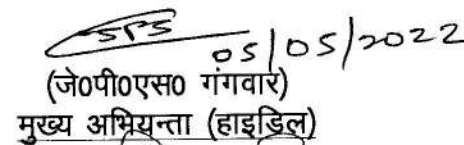 05/05/2022
(जे0पी0एस0 गंगवार)
मुख्य अभियन्ता (हाइडिल)